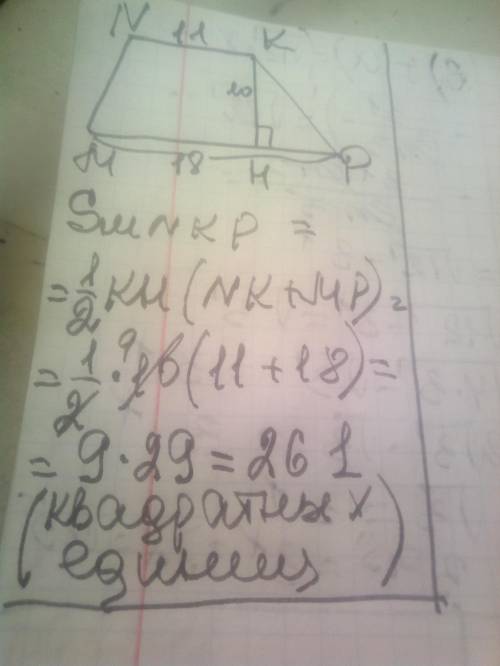 N 11 K
M 18 H P
SMNKP =
= 1/2 KH (NK + MP) =
(11 + 18) =
= 9 · 29 = 261
(квадратных
единиц)